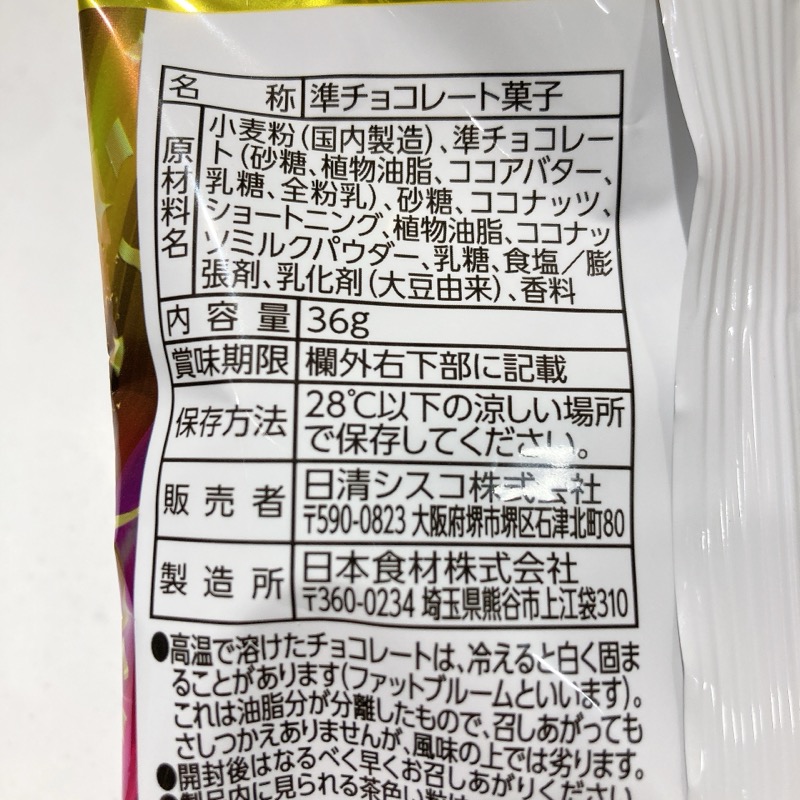 名称 準チョコレート菓子
原材料名 小麦粉(国内製造)、準チョコレー
ト(砂糖、植物油脂、ココアバター、
乳糖、全粉乳)、砂糖、ココナッツ、
ショートニング、植物油脂、ココナッ
ツミルクパウダー、乳糖、食塩/膨
張剤、乳化剤(大豆由来)、香料
内容量 36g
賞味期限 欄外右下部に記載
保存方法 28℃以下の涼しい場所
で保存してください。
販売者 日清シスコ株式会社
〒590-0823 大阪府堺市堺区石津北町80
製造所 日本食材株式会社
〒360-0234 埼玉県熊谷市上江袋310
●高温で溶けたチョコレートは、冷えると白く固ま
ることがあります(ファットブルームといいます)。
これは油脂分が分離したもので、召しあがっても
さしつかえありませんが、風味の上では劣ります。
●開封後はなるべく早くお召しあがりください
●製品内に見られる茶色い粒は